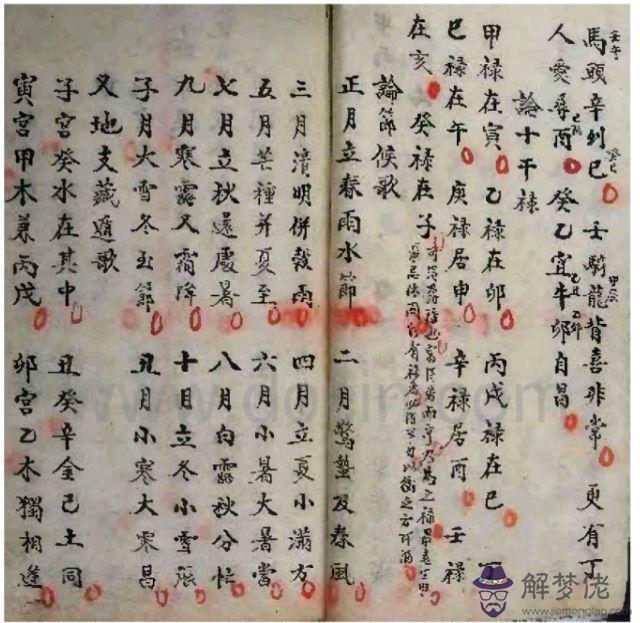 馬頭辛到巳 壬騎龍背喜非常 更有丁
人愛尋酉 癸乙宜牛卯自昌
論十干祿
甲祿在寅 乙祿在卯 丙戊祿在巳 丁
巳祿在午 庚祿居申 辛祿居酉 壬祿
在亥 癸祿在子
論節候歌
正月立春雨水節 二月驚蟄及春風
三月清明併穀雨 四月立夏小滿方
五月芒種并夏至 六月小暑大暑當
七月立秋還處暑 八月白露秋分忙
九月寒露又霜降 十月立冬小雪張
子月大雪冬玉節 丑月小寒大寒昌
又地支藏遁歌
子宮癸水在其中 丑癸辛金己土同
寅宮甲木兼丙戊 卯宮乙木獨相逢
解梦佬
www.jiemenglao.com